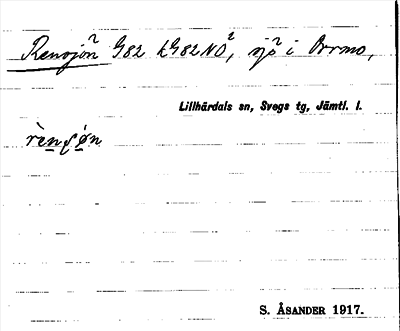 Rensjön 2 G82 kG82NO2, sjö 2 i Orrmo,
Lillhärdals sn, Svegs tg, Jämtl. l.
rènʃø̀n
S. ÅSANDER 1917.